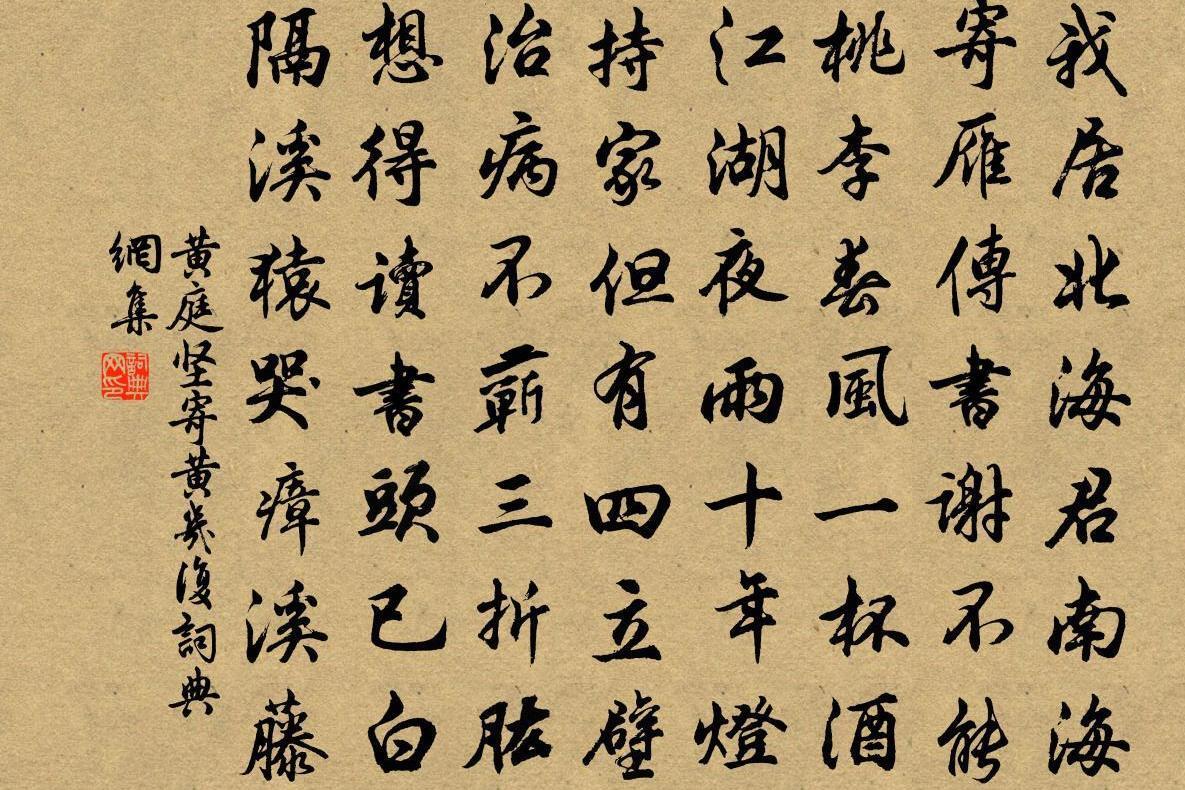 我居北海君南海
寄雁傳書謝不能
桃李春風一杯酒
江湖夜雨十年燈
持家但有四立壁
治病不蘄三折肱
想得讀書頭已白
隔溪猿哭瘴溪藤
黄庭坚寄黄幾復詞典
網集
詞典网印